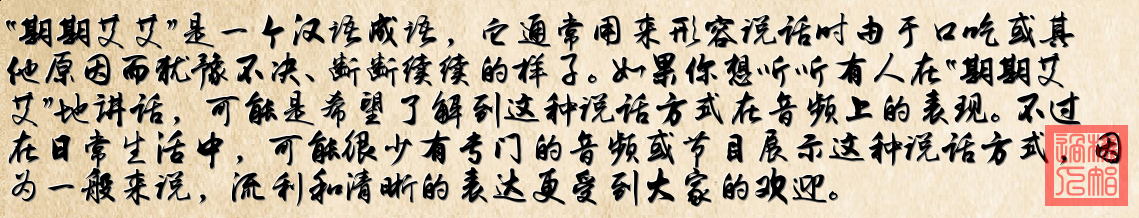 “期期艾艾”是一个汉语成语，它通常用来形容说话时由于口吃或其
他原因而犹豫不决、断断续续的样子。如果你想听听有人在“期期艾
艾”地讲话，可能是希望了解到这种说话方式在音频上的表现。不过
在日常生活中，可能很少有专门的音频或节目展示这种说话方式，因
为一般来说，流利和清晰的表达更受到大家的欢迎。